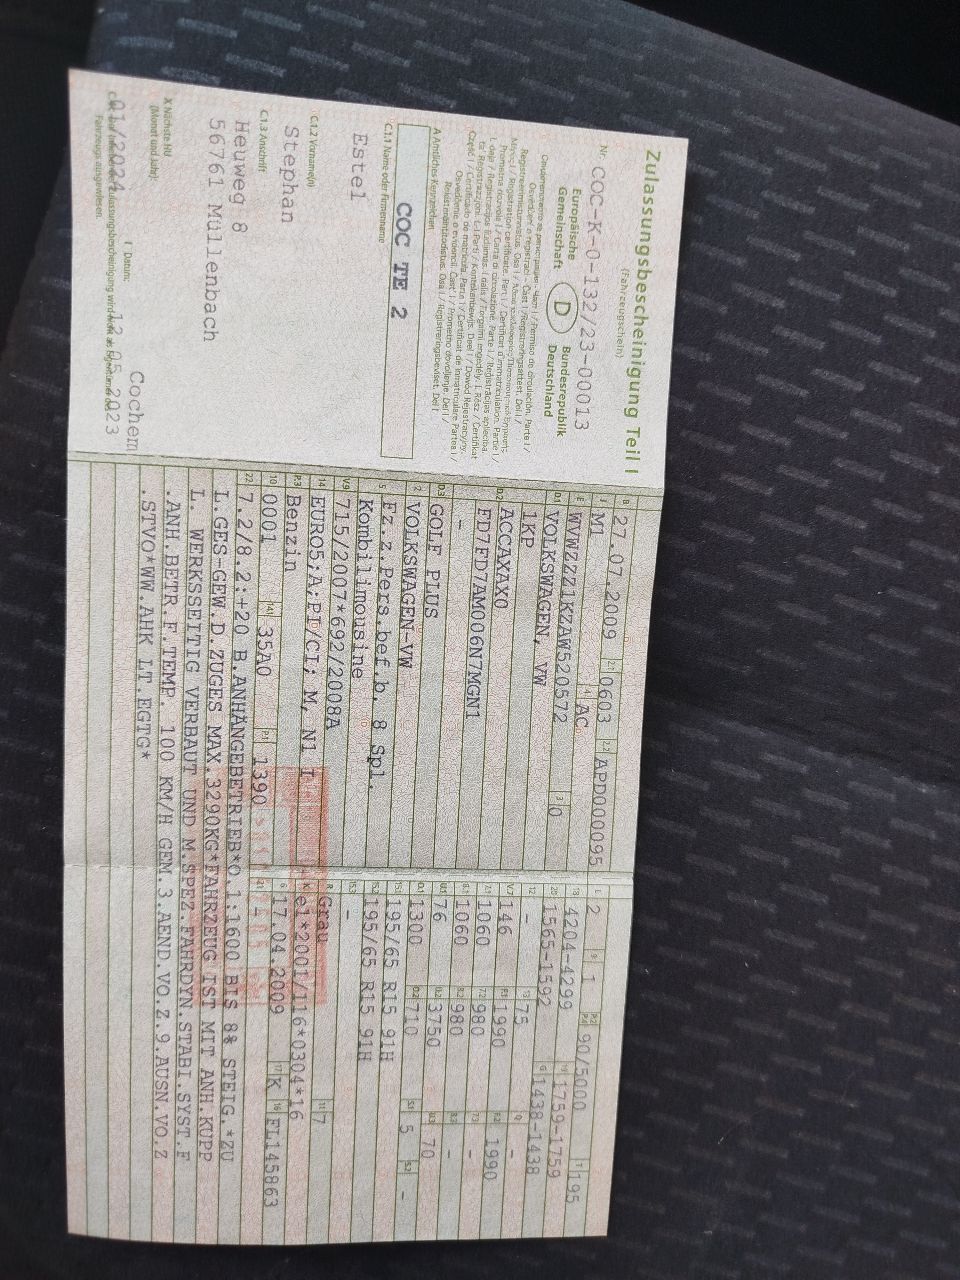 Zulassungsbescheinigung Teil I
(Fahrzeugschein)
Nr. COC-K-0-132/23-00013
Europäische Gemeinschaft
D
Bundesrepublik Deutschland
A Amtliches Kennzeichen
COC TE 2
C.1.1 Name oder Firmenname
Estel
C.1.2 Vorname(n)
Stephan
C.1.3 Anschrift
Heuweg 8
56761 Müllenbach
X Nächste HU
(Monat und Jahr):
01/2024
I Datum:
Cochem
12.05.2023
B 27.07.2009 2.1 0603 2.2 APD000095
J M1 4 AC
E WVWZZZ1KZAW520572 3 0
D.1 VOLKSWAGEN, VW
1KP
D.2 ACCAXAX0
FD7FD7AM006N7MGN1
-
D.3 GOLF PLUS
2 VOLKSWAGEN-VW
5 Fz.z.Pers.bef.b. 8 Spl.
Kombilimousine
V.9 715/2007*692/2008A
14 EURO5;A;PI/CI; M, N1 I
P.3 Benzin
10 0001 14.1 35A0 P.1 1390
L 2 9 1 P.2 P.4 90/5000 T 195
18 4204-4299 19 1759-1759
20 1565-1592 G 1438-1438
12 - 13 75 Q -
V.7 146 F.1 1990 F.2 1990
7.1 1060 7.2 980 7.3 -
8.1 1060 8.2 980 8.3 -
U.1 76 U.2 3750 U.3 70
O.1 1300 O.2 710 S.1 5 S.2 -
15.1 195/65 R15 91H
15.2 195/65 R15 91H
15.3 -
R Grau 11 7
K e1*2001/116*0304*16
6 17.04.2009 17 K 16 FL145863
21 -
22 7.2/8.2:+20 B.ANHÄNGEBETRIEB*O.1:1600 BIS 8% STEIG.*ZU
L.GES-GEW.D.ZUGES MAX.3290KG*FAHRZEUG IST MIT ANH.KUPP
L. WERKSSEITIG VERBAUT UND M.SPEZ.FAHRDYN.STABI.SYST.F
.ANH.BETR.F.TEMP. 100 KM/H GEM.3.AEND.VO.Z.9.AUSN.VO.Z
.STVO*WW.AHK LT.EGTG*